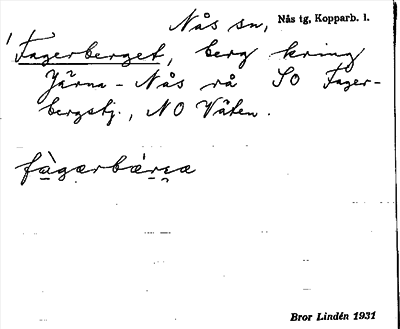 Nås sn, Nås tg, Kopparb. l.
Fagerberget, berg kring
Järna - Nås rå SO Fager-
bergstj., NO Väten.
fàgærbærɛæ
Bror Lindén 1931